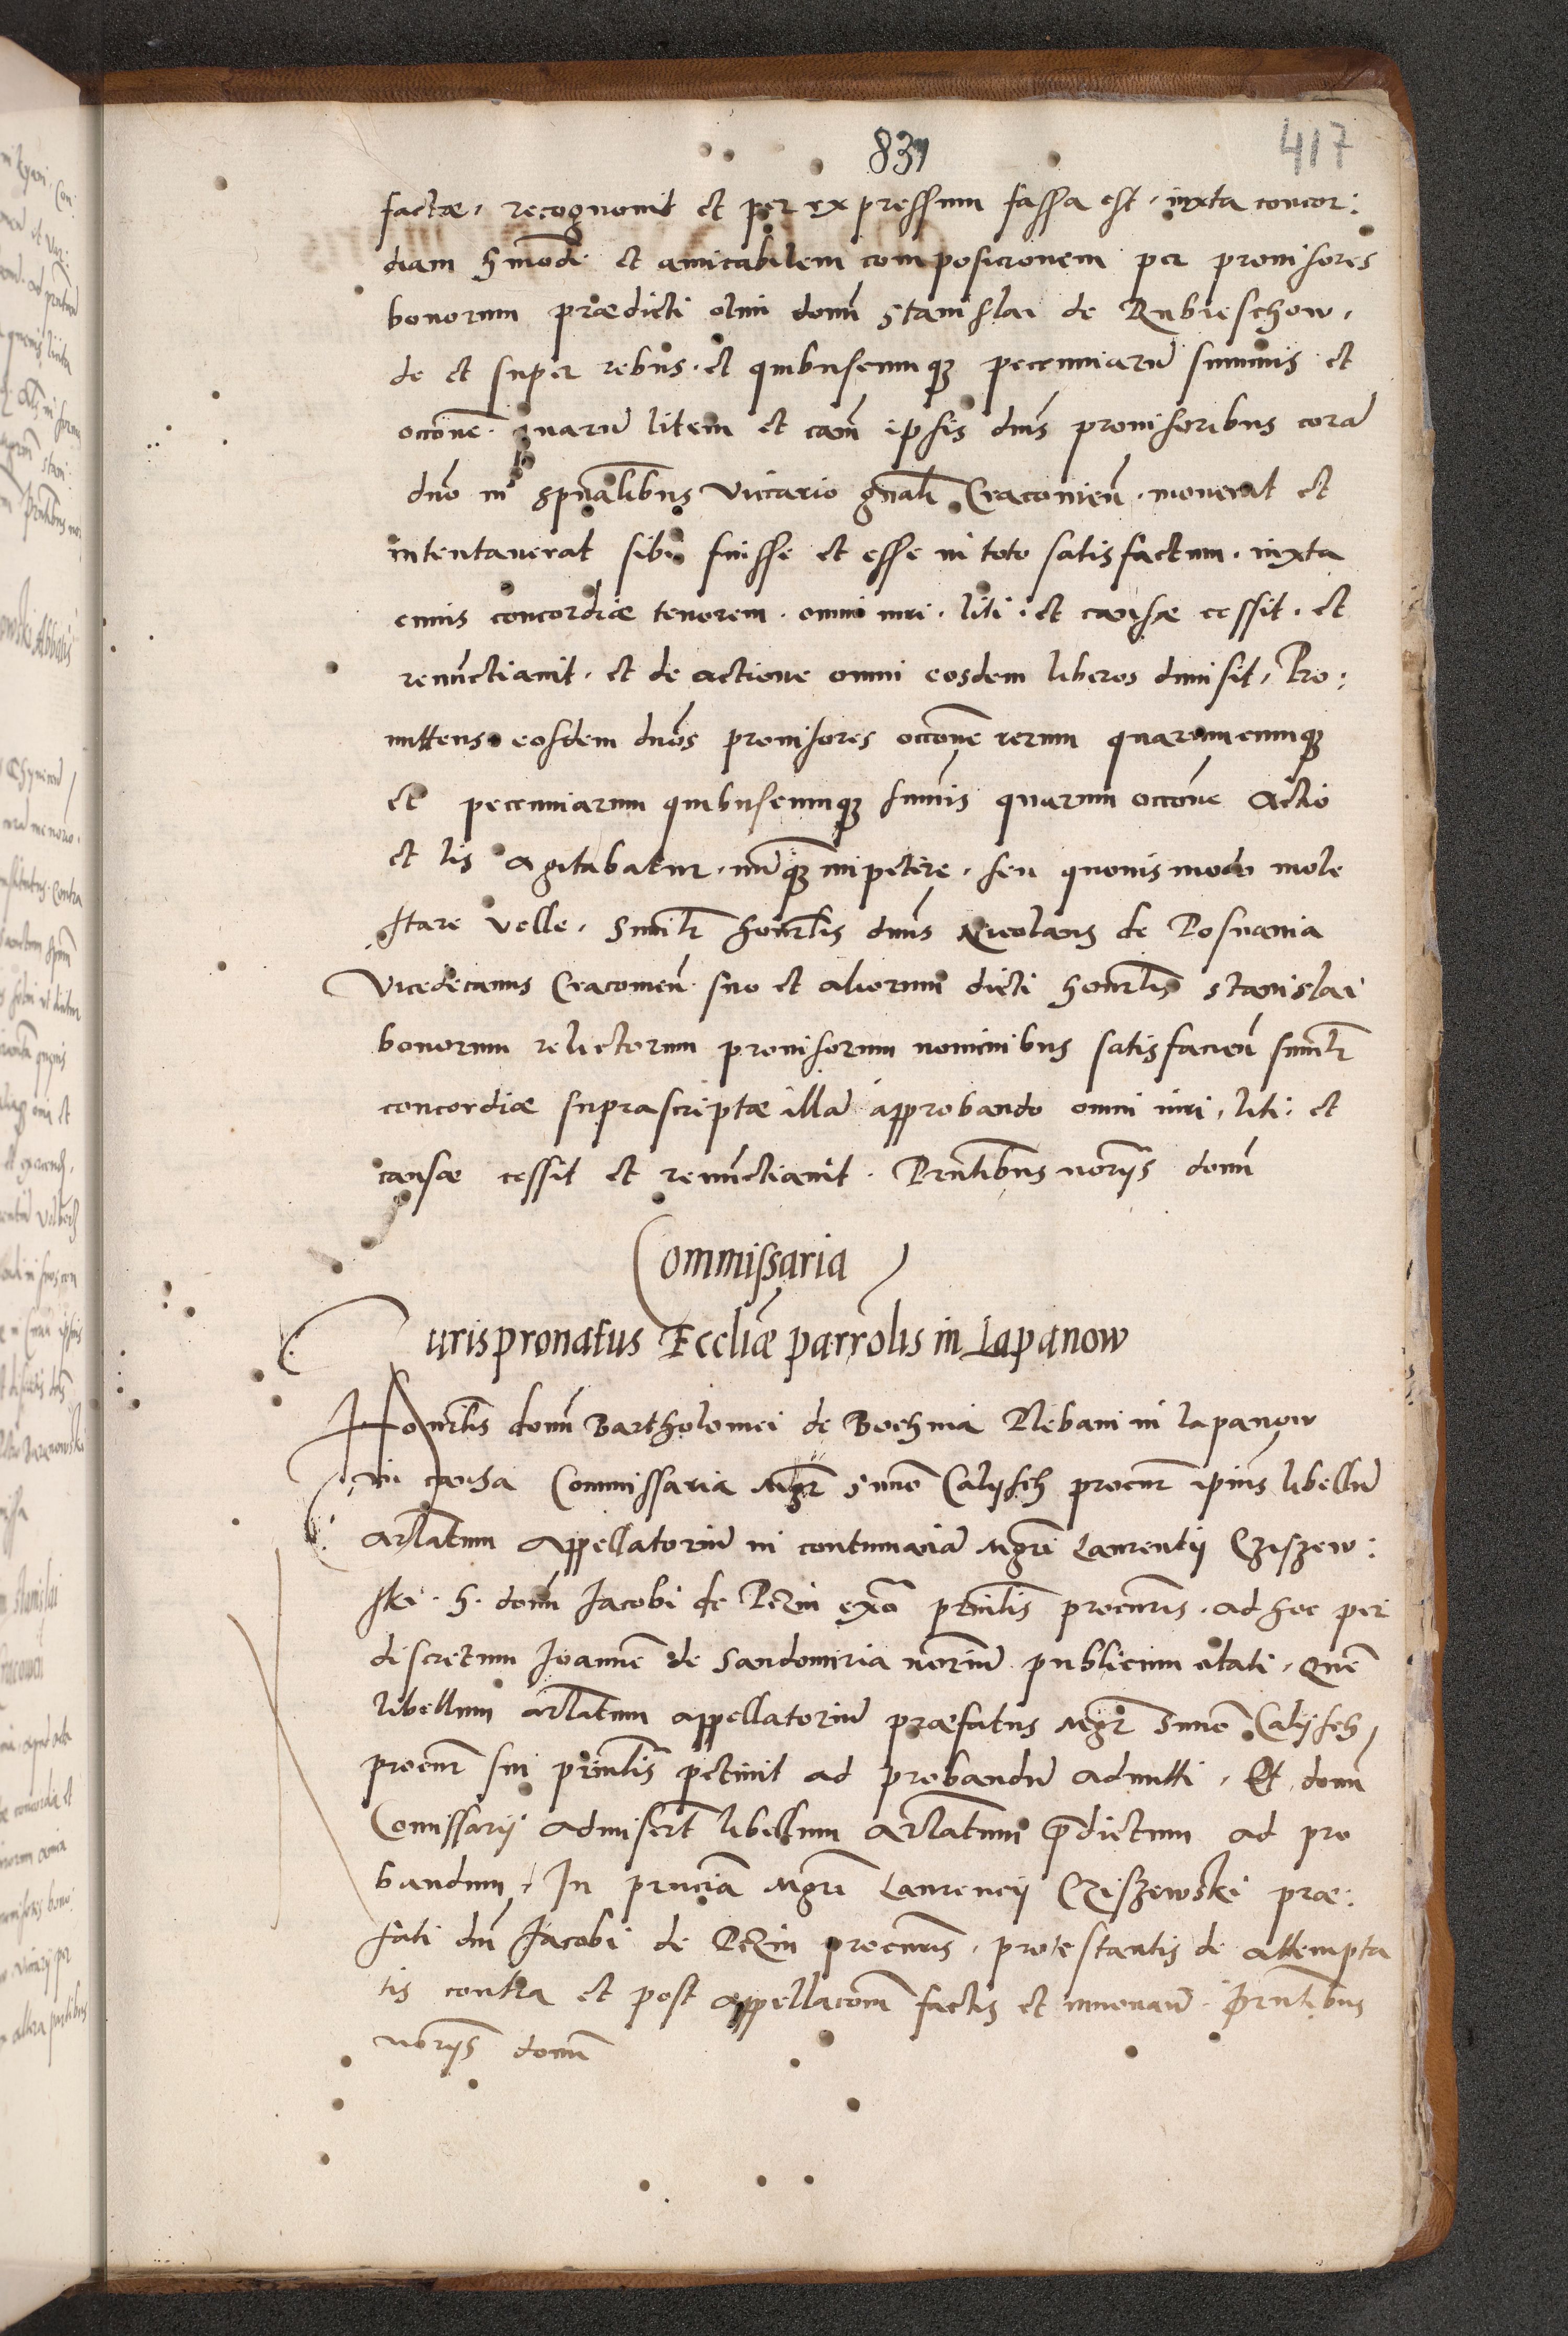 831
417
factæ, recognovit et per expressum fassa est, iuxta concor:
diam hmodi et amicabilem composicionem per provisores
bonorum prædicti olim domi Stanislai de Rubieschow,
de et super rebus, et quibuscumque pecenniaru summis et
occone quaru litem et cam ipsis dnis provisoribus cora
dno in spualibus Vicario gnali Cracovien. moverat et
intentaverat sibi fuisse et esse in toto satisfactum, iuxta
cuius concordiæ tenorem, omni iuri, liti, et causæ cessit, et
renunctiavit, et de actione omni eosdem liberos dimisit, Pro:
mittens eosdem dnos provisores occone rerum quarumcumque
et pecenniarum quibuscumque summis quarum occone actio
et lis agitabatur, nunque impetere, seu quovismodo mole
stare velle, Similr honrlis dnus Nicolaus de Posnania
Vicedecanus Cracovien. suo et aliorum dicti honrlis Stanislai
bonorum relictorum provisorum nominibus satisfacien similr
concordiæ suprascriptæ illa approbando omni iuri, liti et
causæ cessit et renunctiavit. Pntibus noriis domi
Commissaria
Iurispronatus Eccliæ parrolis in Lapanow
Honrlis domi Bartholomei de Bochnia Plebani in Lapanow
in causa Commissaria Mgr Simo Calijsch procur ipius libellu
arlatum appellatoriu in contumacia Mgri Laurentij Cziszew:
ski. h. domi Jacobi de Pczin ex principalis procuris, ad hoc per
discretum Joanne de Sandomiria noriu publicum citati, Que
libellum arlatum appellatoriu præfatus Mgr Simo Calijsch
procur sui principalis petiuit ad probandu admitti, Et domi
Comissarij admisert libellum arlatum prædictum ad pro
bandum, In pncia Mgri Laurencij Cziszewski præ:
fati dni Jacobi de Pczin procuris, protestantis de attempta
tis contra et post appellacom factis et innovan. Pntibus
noriis domi